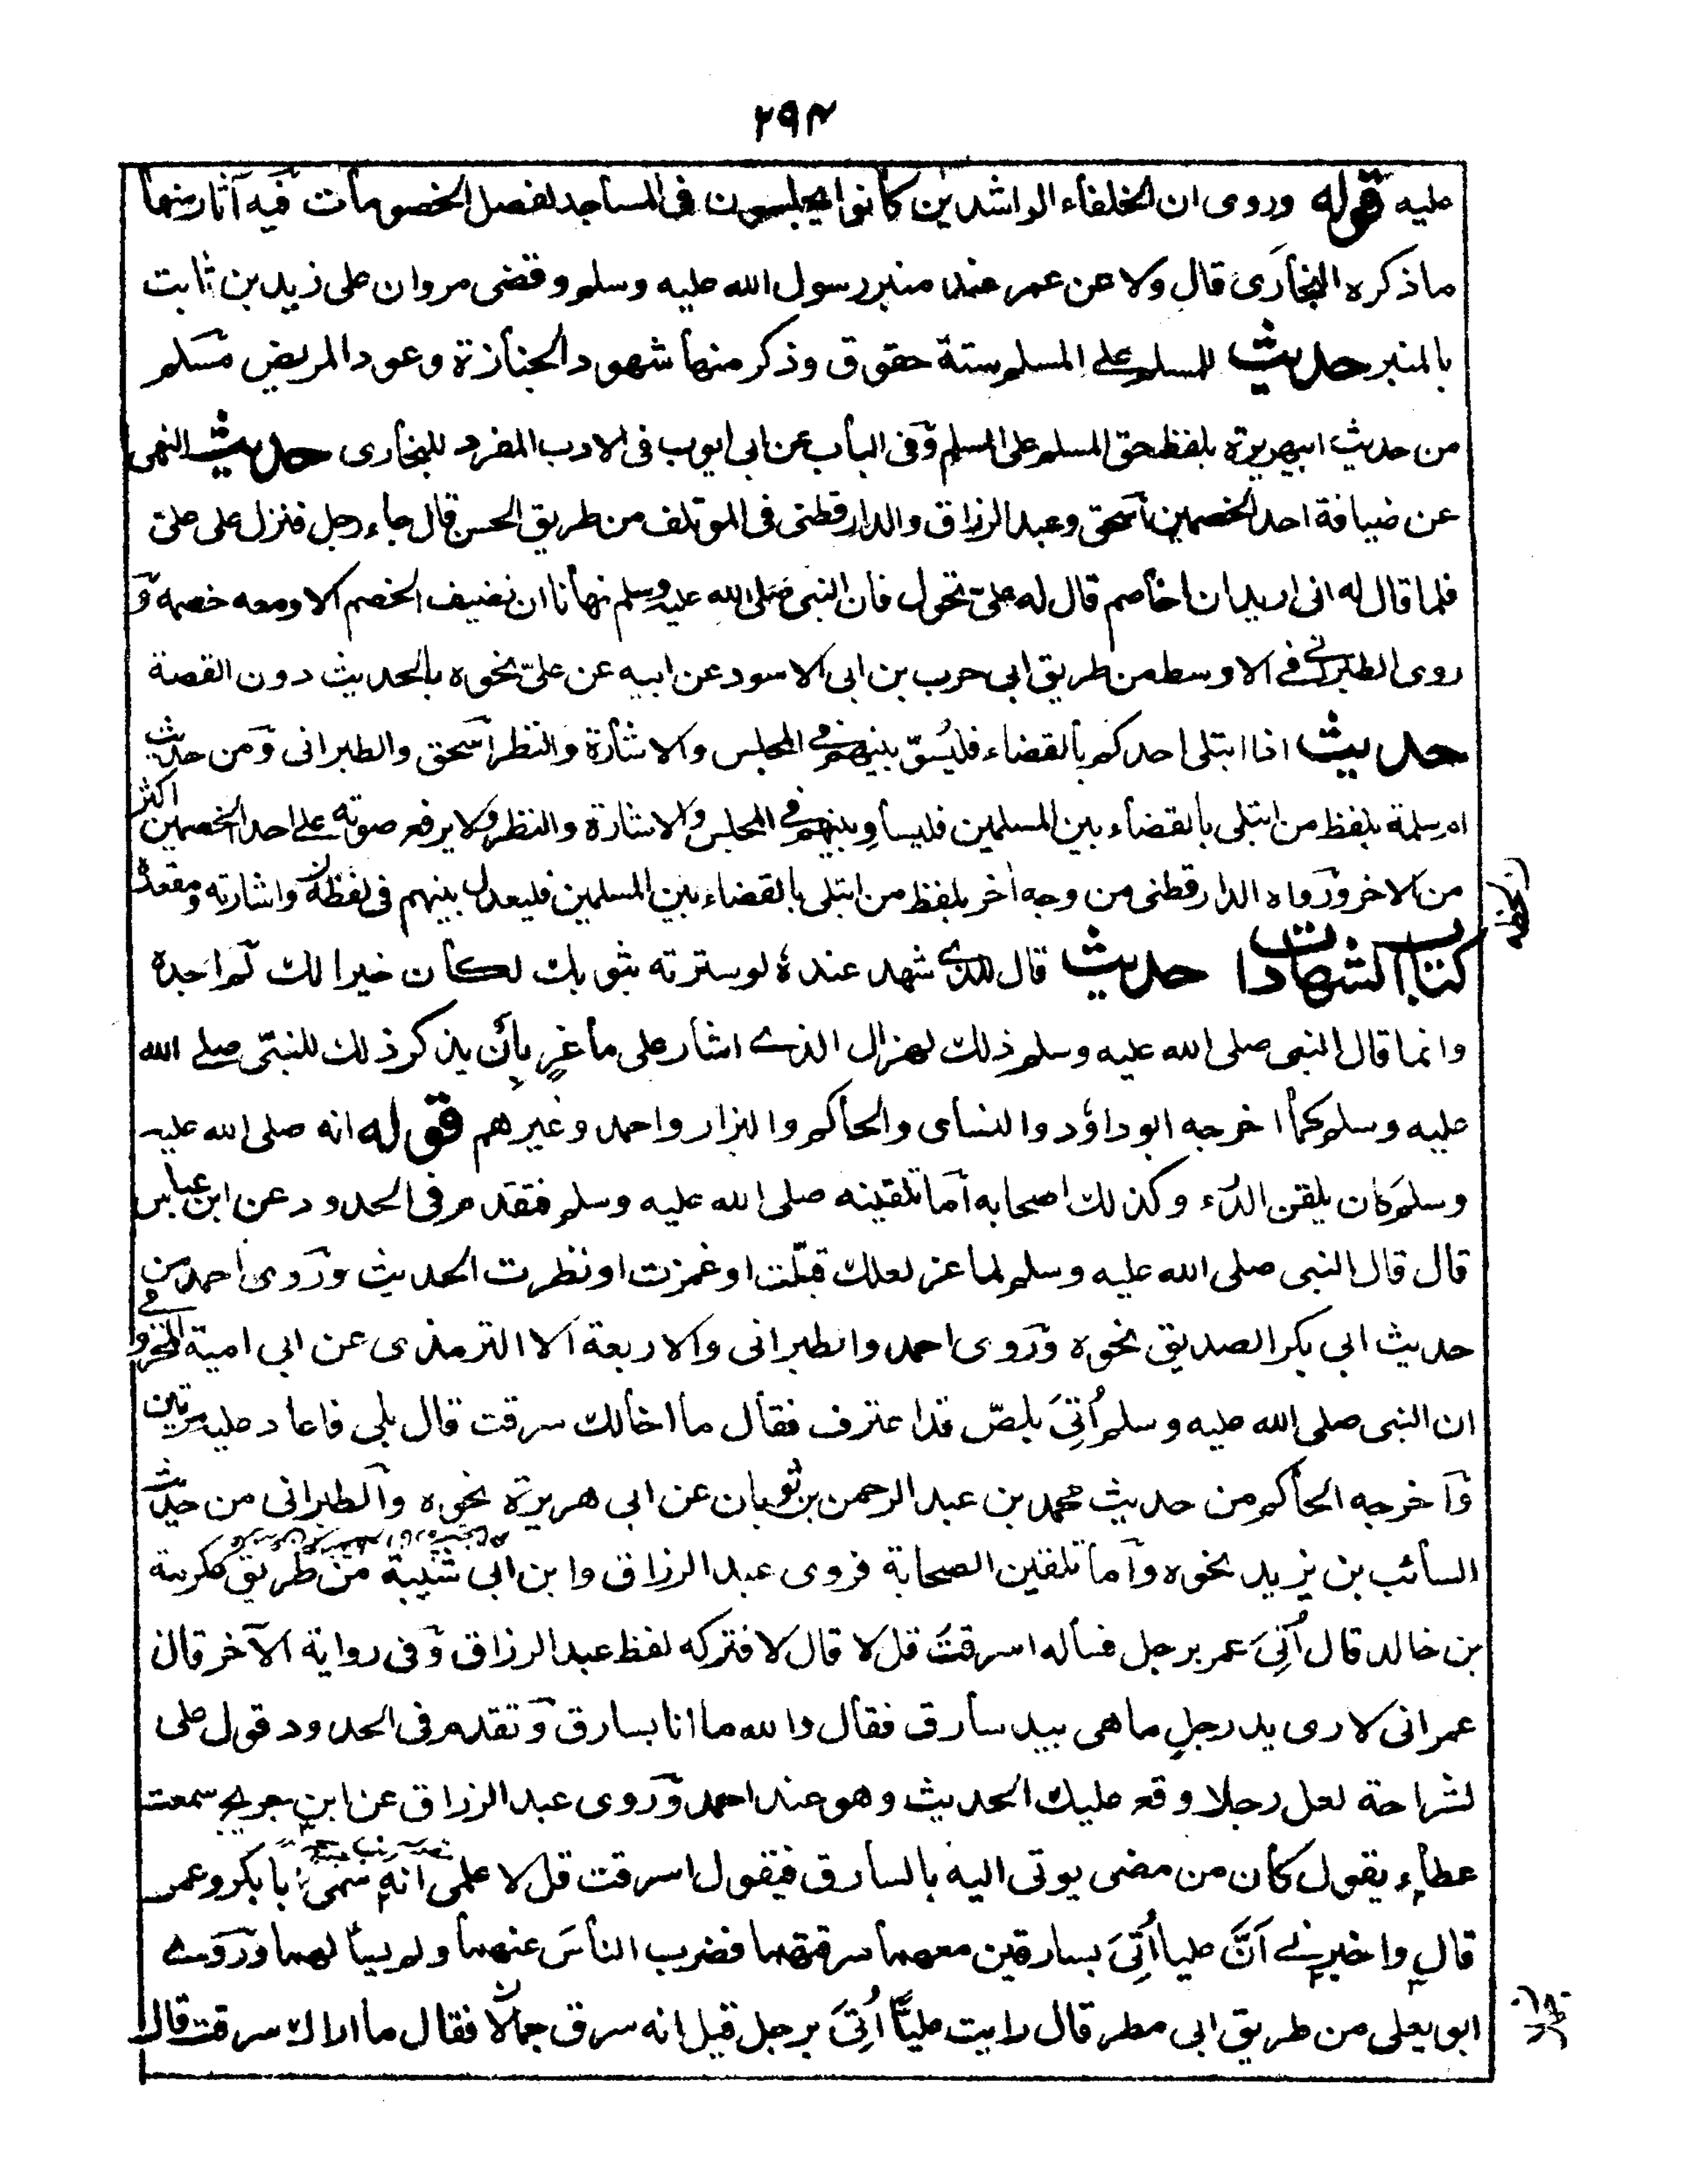 ٢٩٤
عليه قوله وروى ان الخلفاء الراشدين كانوا يجلسون فى المساجد لفصل الخصومات فيه آثار منها
ما ذكره البخارى قال ولاعن عمر عند منبر رسول الله عليه وسلم وقضى مروان على زيد بن ثابت
بالمنبر حديث للمسلم على المسلم ستة حقوق وذكر منها شهود الجنازة وعود المريض مسلم
من حديث ابيهريرة بلفظ حق المسلم على المسلم وفى الباب عن ابى ايوب فى الادب المفرد للبخارى حديث النهى
عن ضيافة احد الخصمين اسحق وعبد الرزاق والدارقطنى فى الموتلف من طريق الحسن قال جاء رجل فنزل على على
فلما قال له انى اريد ان اخاصم قال له على تحول فان النبى صلى الله عليه وسلم نهانا ان نضيف الخصم الا ومعه خصمه و
روى الطبرانى فى الاوسط من طريق ابى حرب بن ابى الاسود عن ابيه عن على نحوه بالحديث دون القصة
حديث اذا ابتلى احدكم بالقضاء فليسوّ بينهم فى المجلس والاشارة والنظر اسحق والطبرانى ومن حديث
ام سلمة بلفظ من ابتلى بالقضاء بين المسلمين فليساو بينهم فى المجلس والاشارة والنظر ولا يرفع صوته على احد الخصمين اكثر
من الاخر ورواه الدارقطنى من وجه اخر بلفظ من ابتلى بالقضاء بين المسلمين فليعدل بينهم فى لفظه واشارته ومقعده
كتاب الشهادات حديث قال للذى شهد عنده لو سترته بثوبك لكان خيرا لك لم اجده
وانما قال النبى صلى الله عليه وسلم ذلك لهزال الذى اشار على ماعز بان يذكر ذلك للنبى صلى الله
عليه وسلم كما اخرجه ابو داؤد والنساى والحاكم والبزار واحمد وغيرهم قوله انه صلى الله عليه
وسلم كان يلقن الدرء وكذلك اصحابه اما تلقينه صلى الله عليه وسلم فتقدم فى الحدود عن ابن عباس
قال قال النبى صلى الله عليه وسلم لماعز لعلك قبلت او غمزت او نظرت الحديث وروى احمد من
حديث ابى بكر الصديق نحوه وروى احمد والطبرانى والاربعة الا الترمذى عن ابى امية المخزومى
ان النبى صلى الله عليه وسلم اُتِىَ بلصّ قد اعترف فقال ما اخالك سرقت قال بلى فاعاد عليه مرتين
واخرجه الحاكم من حديث محمد بن عبد الرحمن بن ثوبان عن ابى هريرة نحوه والطبرانى من حديث
السائب بن يزيد نحوه واما تلقين الصحابة فروى عبد الرزاق وابن ابى شيبة من طريق عكرمة
بن خالد قال اُتِىَ عمر برجل فساله اسرقت قل لا قال لا فتركه لفظ عبد الرزاق وفى رواية الآخر قال
عمر انى لارى يد رجلٍ ما هى بيد سارق فقال والله ما انا بسارق وتقدم فى الحدود قول على
لشراحة لعل رجلا وقع عليك الحديث وهو عند احمد وروى عبد الرزاق عن ابن جريج سمعت
عطاء يقول كان من مضى يوتى اليه بالسارق فيقول اسرقت قل لا علمى انه سمى ابا بكر وعمر
قال واخبرنى اَنَّ عليا اُتِىَ بسارقين معهما سرقتهما فضرب الناسَ عنهما ولم يسأل لهما وروى
ابو يعلى من طريق ابى مطر قال رايت عليًّا اُتِىَ برجل قيل انه سرق جملا فقال ما اراك سرقت قال